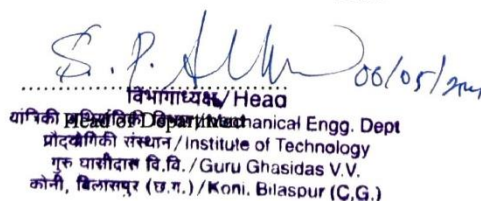 S. P.
06/05/
विभागाध्यक्ष/Head
यांत्रिकी Head of Department Mechanical Engg. Dept
प्रौद्योगिकी संस्थान/Institute of Technology
गुरु घासीदास वि.वि./Guru Ghasidas V.V.
कोनी, बिलासपुर (छ.ग.)/Koni. Bilaspur (C.G.)